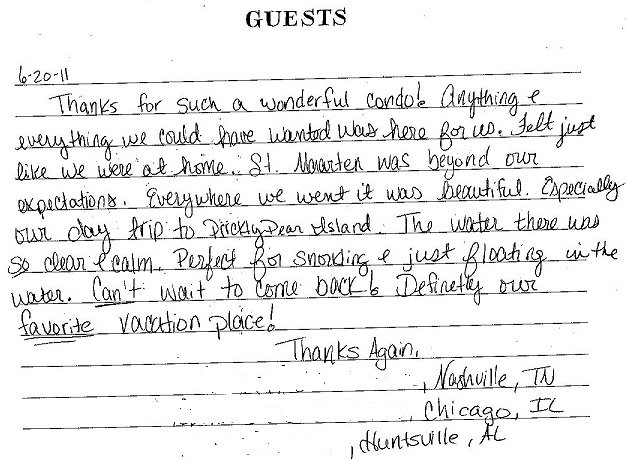 GUESTS
6-20-11
Thanks for such a wonderful condo! Anything &
everything we could have wanted was here for us. Felt just
like we were at home. St. Maarten was beyond our
expectations. Everywhere we went it was beautiful. Especially
our day trip to Prickly Pear Island. The water there was
so clear & calm. Perfect for snorkling & just floating in the
water. Can't wait to come back! Definetly our
favorite vacation place!
Thanks Again,
, Nashville, TN
, Chicago, IL
, Huntsville, AL